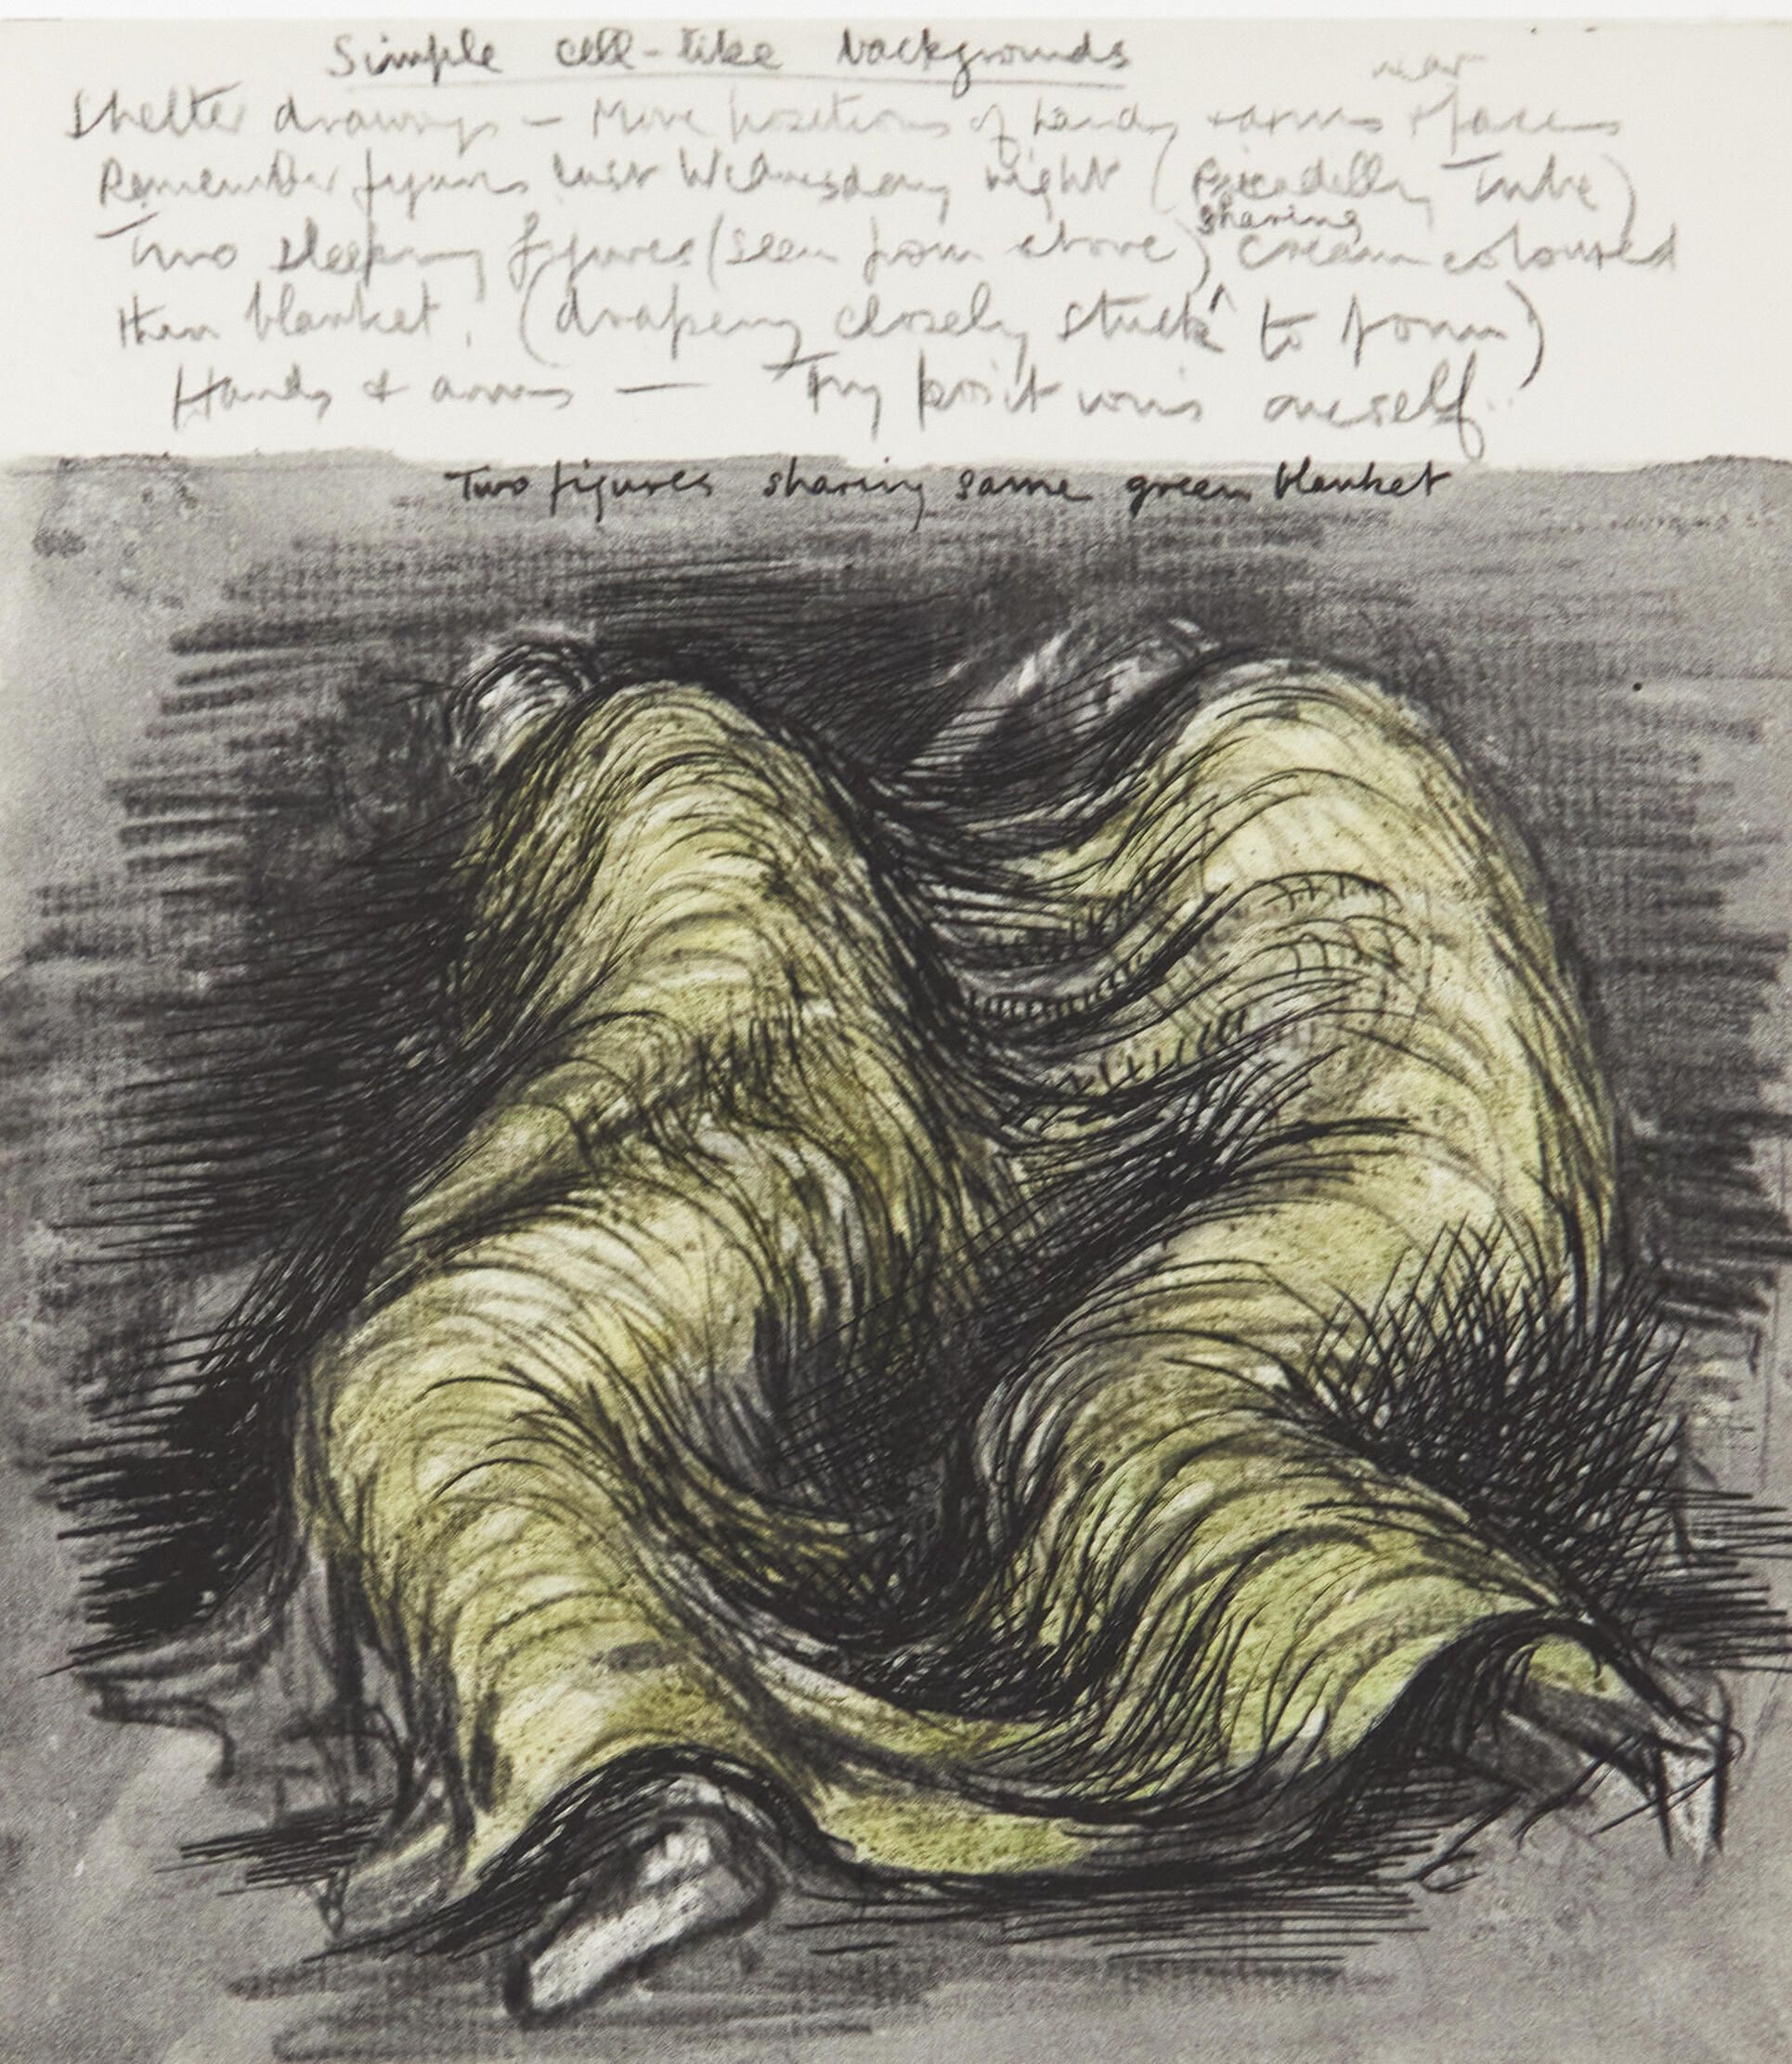 Simple cell-like backgrounds
near
Shelter drawings – More positions of hands + arms + faces
Remember figures last Wednesday night (Piccadilly Tube)
Two sleeping figures (seen from above) sharing cream coloured
thin blanket. (drapery closely stuck to form)
Hands + arms — Try positions oneself.
Two figures sharing same green blanket